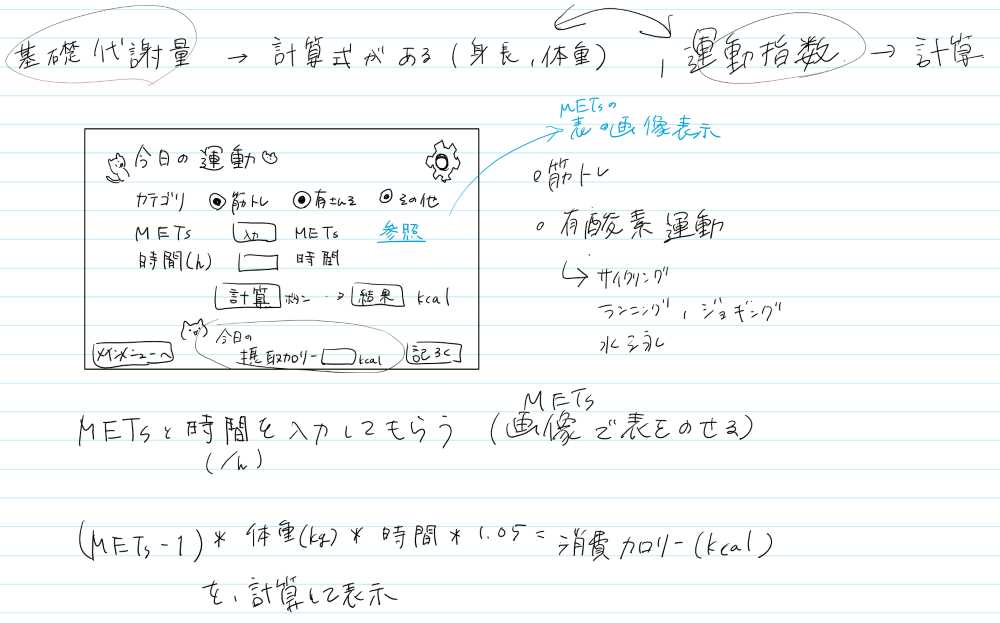 基礎代謝量 → 計算式がある (身長, 体重) , 運動指数 → 計算
METsの
表の画像表示
今日の運動
カテゴリ 筋トレ 有さんそ その他
METs 入力 METs 参照
時間(h) 時間
計算 ボタン → 結果 kcal
今日の
摂取カロリー kcal
メインメニューへ 記ろく
・筋トレ
・有酸素運動
↳ サイクリング
ランニング, ジョギング
水えい
METsと時間を入力してもらう (画像で表をのせる)
METs
(/h)
(METs-1) * 体重(kg) * 時間 * 1.05 = 消費カロリー(kcal)
を、計算して表示